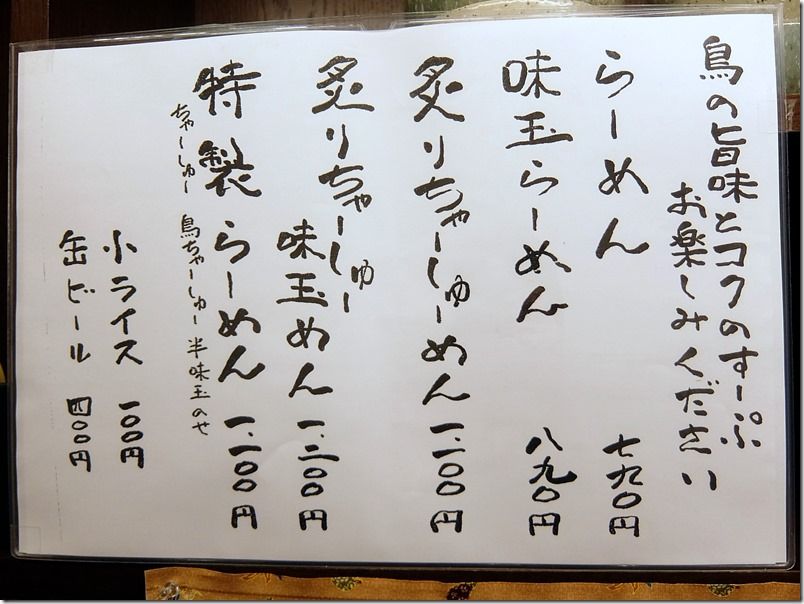 鳥の旨味とコクのすーぷ
お楽しみください
らーめん 七九〇円
味玉らーめん 八九〇円
炙りちゃーしゅーめん 一、一〇〇円
炙りちゃーしゅー
味玉めん 一、二〇〇円
特製らーめん 一、一〇〇円
ちゃーしゅー 鳥ちゃーしゅー 半味玉のせ
小ライス 一〇〇円
缶ビール 四〇〇円